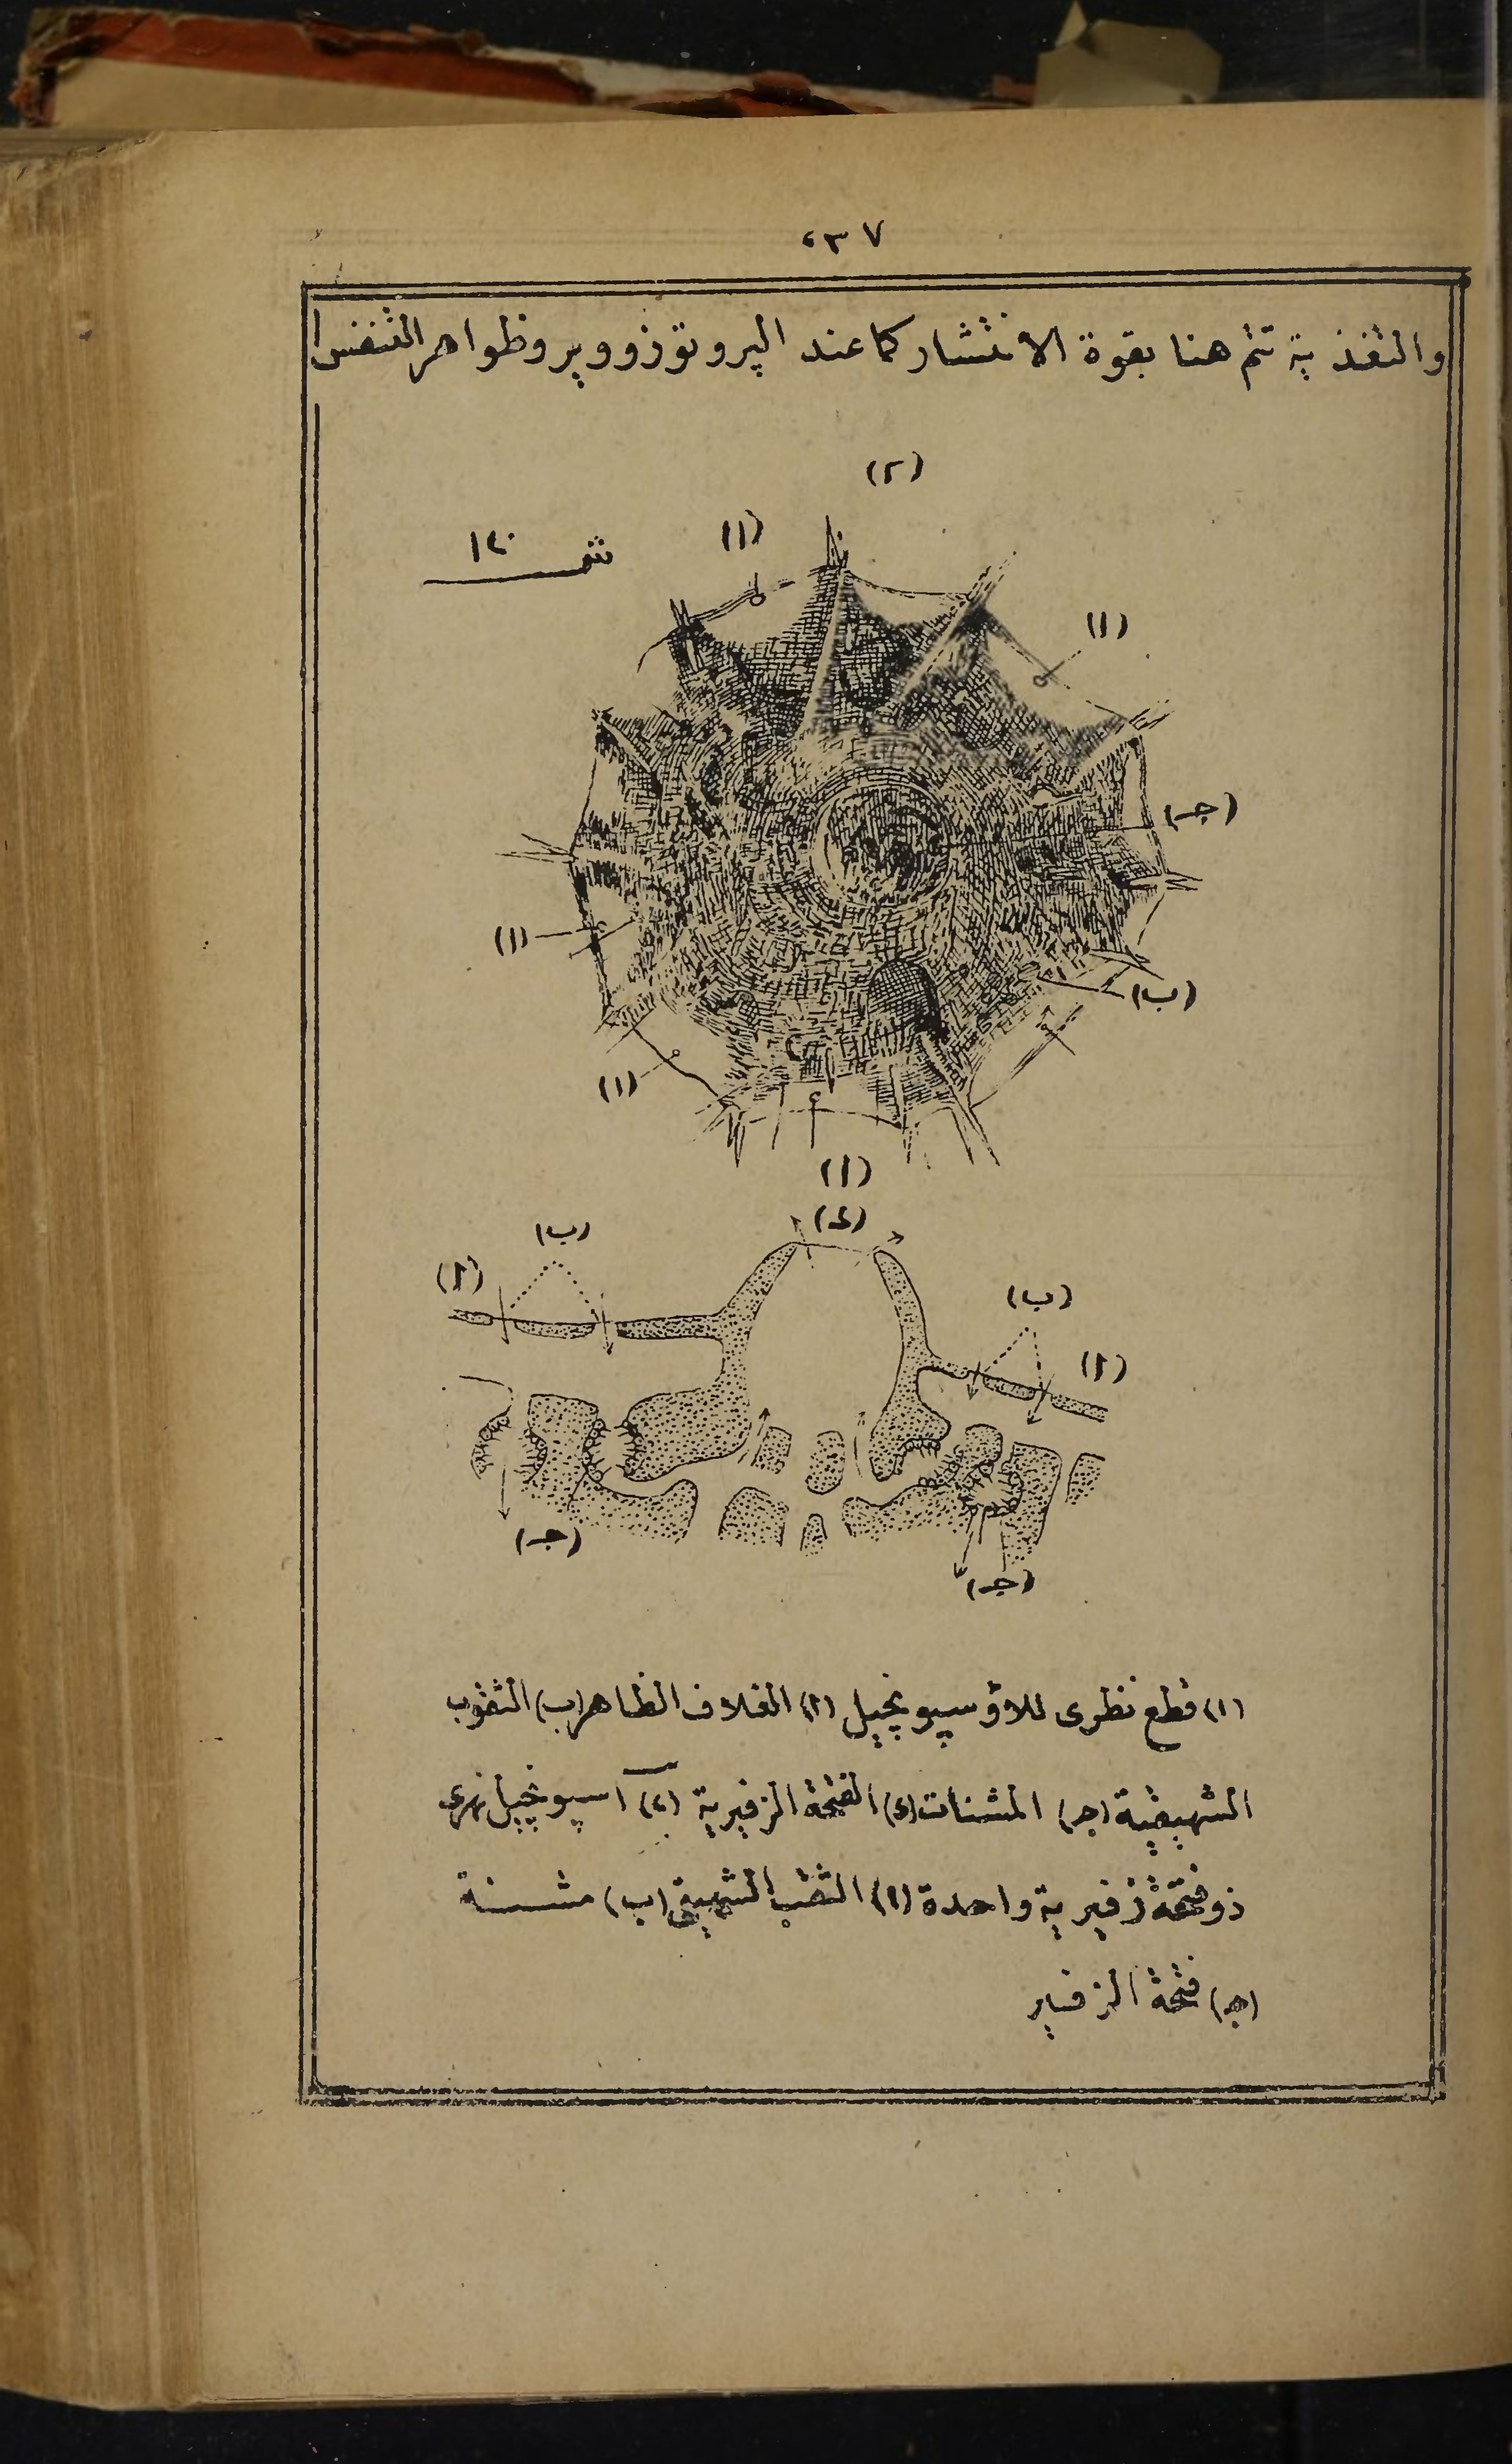 ٢٣٧
والتغذية تتم هنا بقوة الانتشار كما عند الپروتوزووير وظواهر التنفس
(٢)
شـ ١٢٠
(١)
(١)
(جـ)
(١)
(ب)
(١)
(١)
(د)
(ب)
(أ)
(ب)
(أ)
(جـ)
(جـ)
(١) قطع نظرى للاسپونچيل (أ) الغلاف الظاهر (ب) الثقوب
الشهيقية (جـ) المشنات (د) الفتحة الزفيرية (٢) اسپونچيل نهرى
ذو فتحة زفيرية واحدة (أ) الثقب الشهيقى (ب) مشنة
(جـ) فتحة الزفير